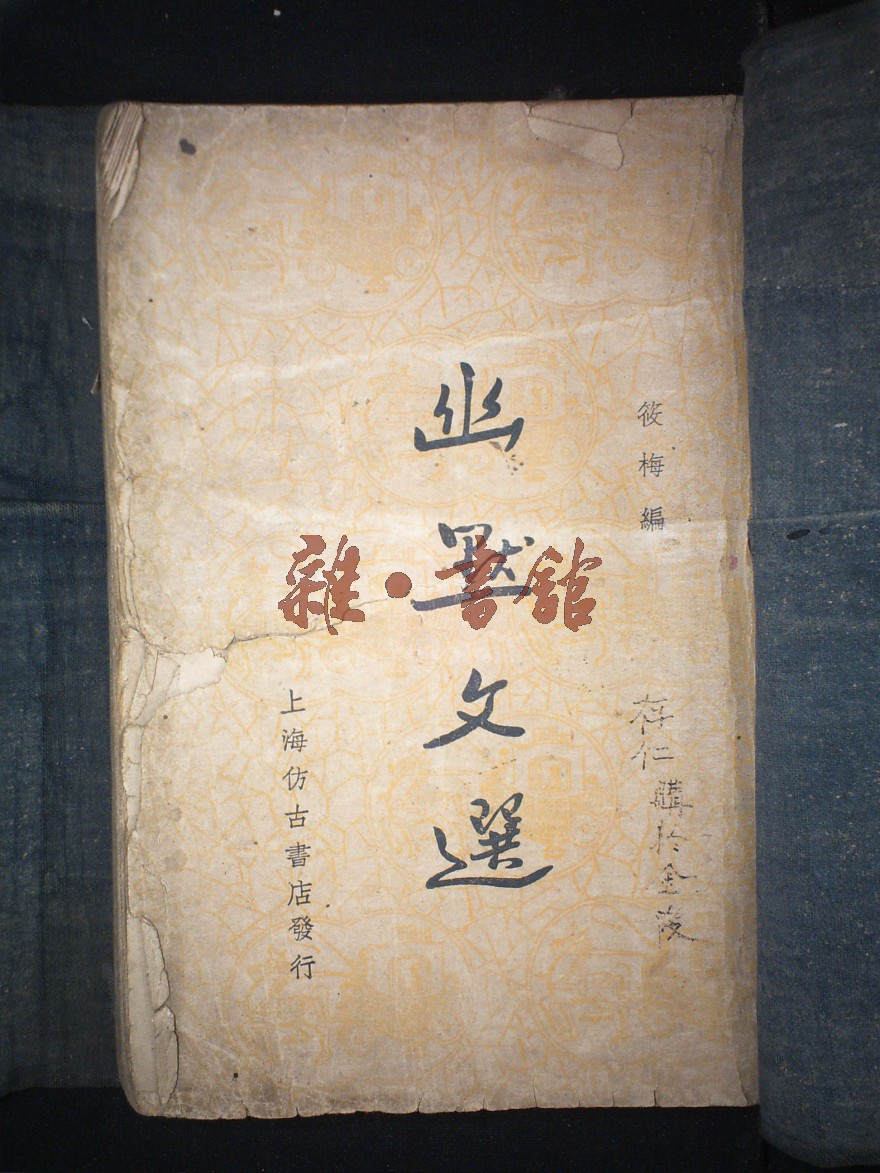 筱梅編
存仁購於金陵
幽默文選
雜·書館
上海仿古書店發行